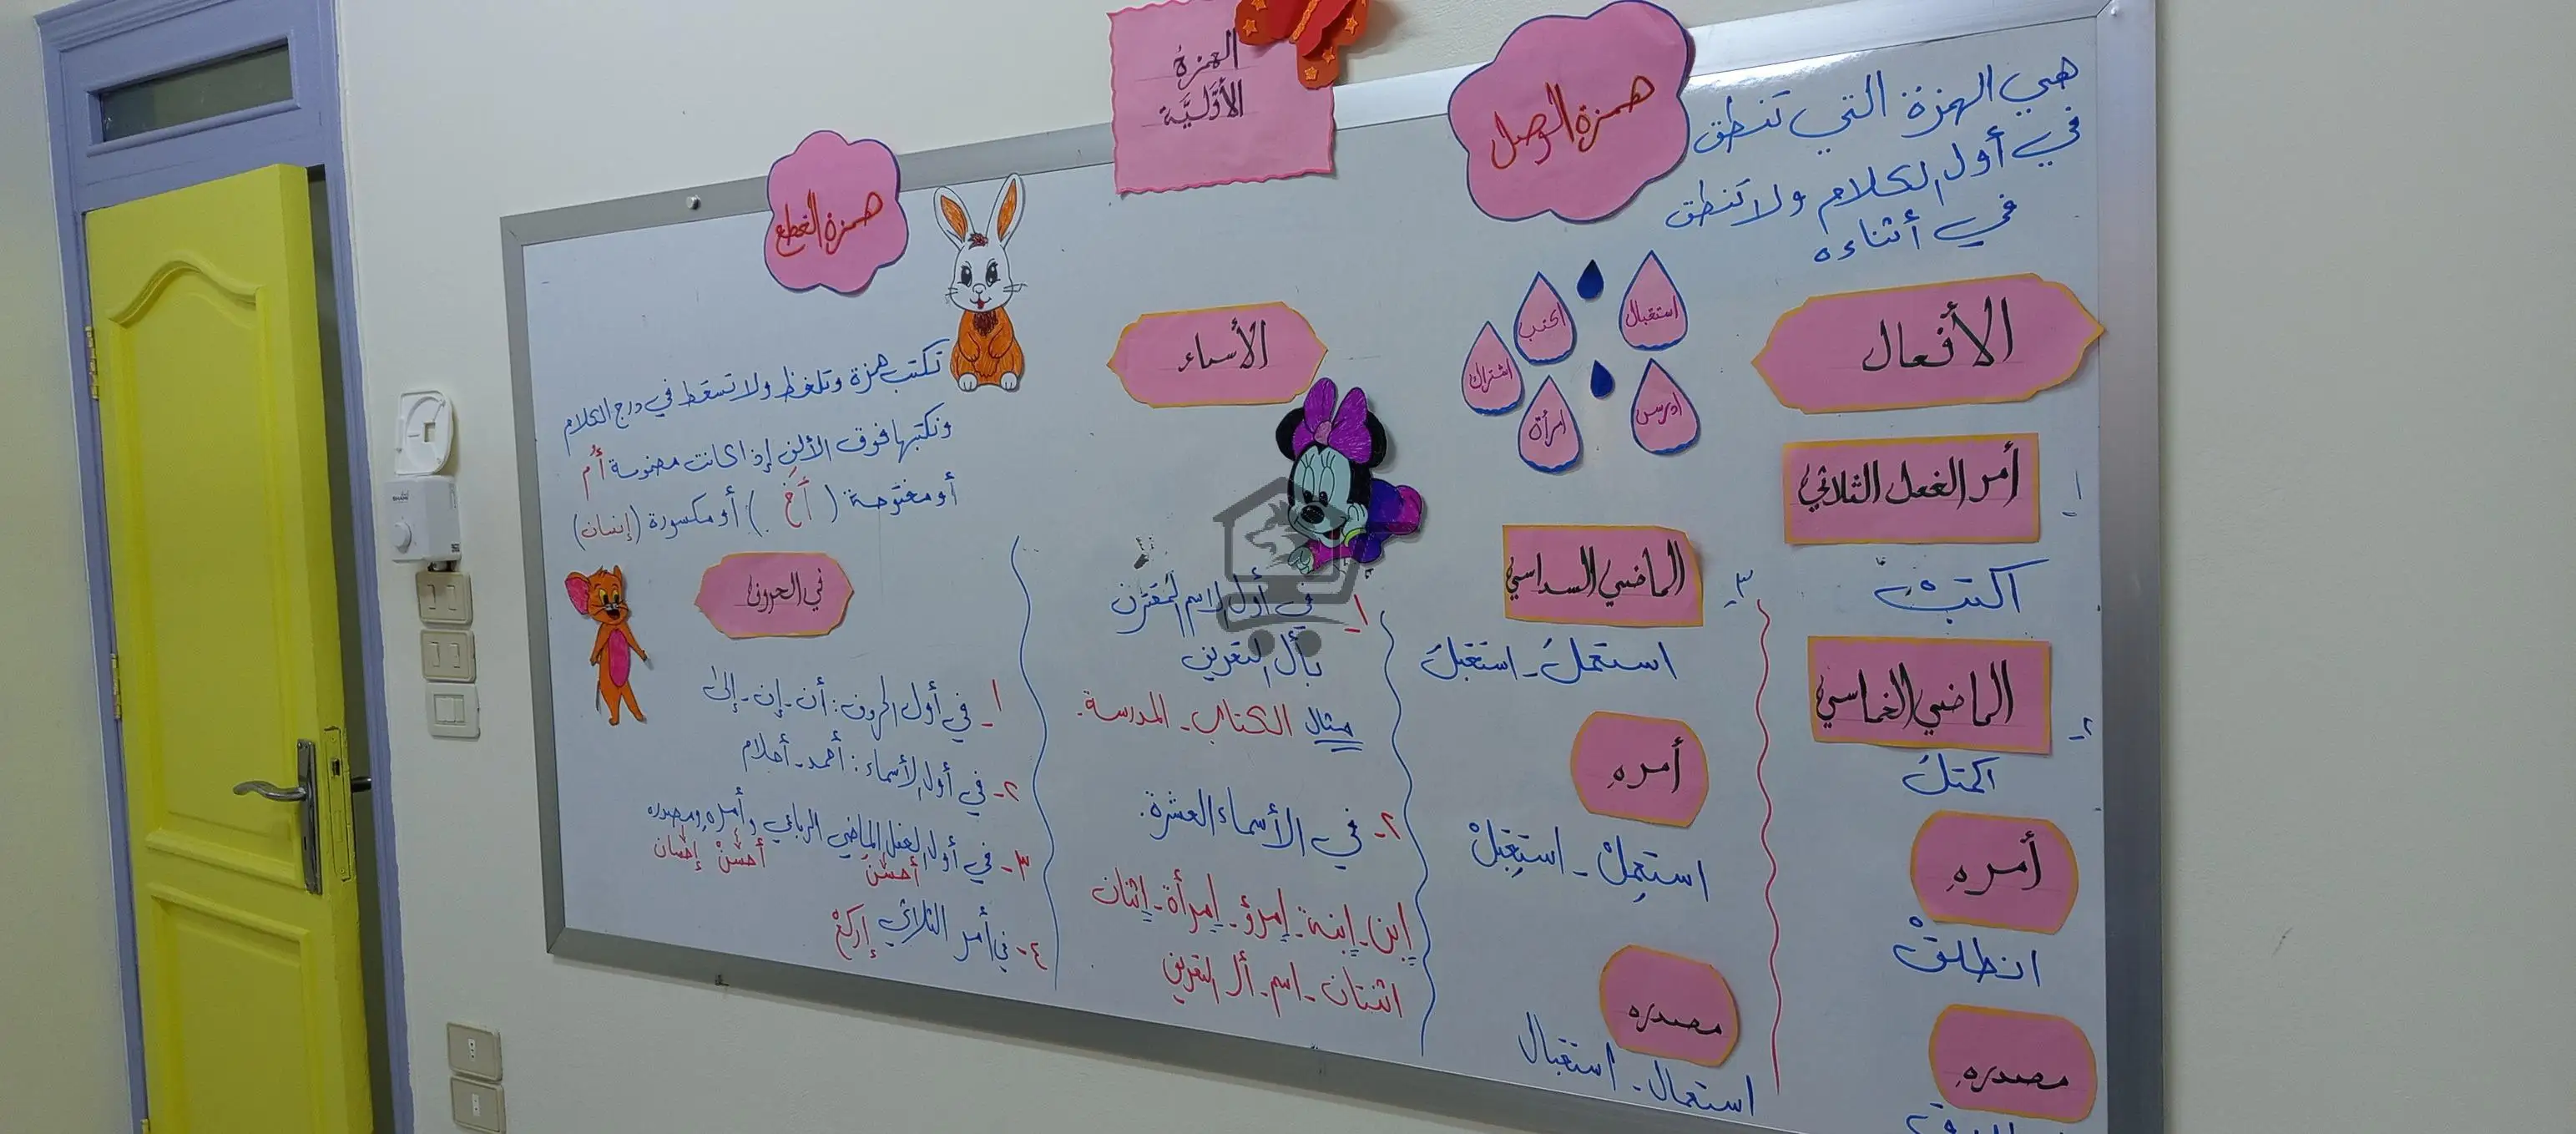 الهمزة
الأوّليّة
همزة الوصل
هي الهمزة التي تنطق
في أول الكلام ولا تنطق
في أثناءه
استقبال
اكتب
اشتراك
ادرس
امرأة
الأفعال
١-
أمر الفعل الثلاثي
اكتبْ
٢-
الماضي الخماسي
أمره
انطلقْ
مصدره
٣-
الماضي السداسي
استعملَ - استقبلَ
أمره
استعمِلْ - استقبِلْ
مصدره
استعمال - استقبال
الأسماء
١- في أول الاسم المقترن
بأل التعريف
مثال الكتاب - المدرسة.
٢- في الأسماء العشرة.
إبن - إبنة - إمرؤ - إمرأة - إثنان
اثنتان - اسم - أل التعريف
همزة القطع
تكتب همزة وتلفظ ولا تسقط في درج الكلام
ونكتبها فوق الألف إذا كانت مضمومة أُم
أو مفتوحة ( أَخ ) أو مكسورة (إنسان)
في الحروف
١- في أول الحروف: أن - إن - إلى
٢- في أول الأسماء: أحمد - أحلام
٣- في أول الفعل الماضي الرباعي وأمره ومصدره
أحسنَ أحسنْ إحسان
٤- في أمر الثلاثي إركعْ